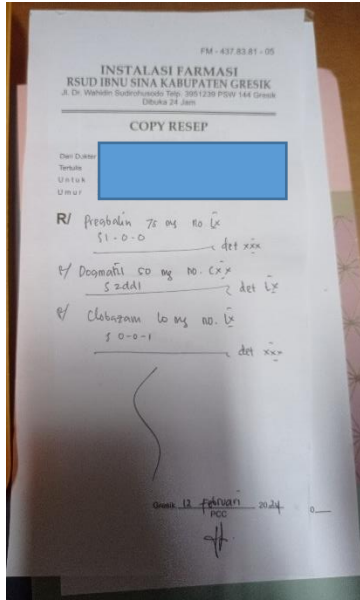 FM - 437.83.81 - 05
INSTALASI FARMASI
RSUD IBNU SINA KABUPATEN GRESIK
Jl. Dr. Wahidin Sudirohusodo Telp. 3951239 PSW 144 Gresik
Dibuka 24 Jam
COPY RESEP
Dari Dokter
Tertulis
Untuk
Umur
R/ Pregabalin 75 mg no. lx
S 1-0-0
det xxx
R/ Dogmatil 50 mg no. cxx
S 2dd1
det lx
R/ Clobazam 10 mg no. lx
S 0-0-1
det xxx
Gresik 12 Februari 2024
PCC